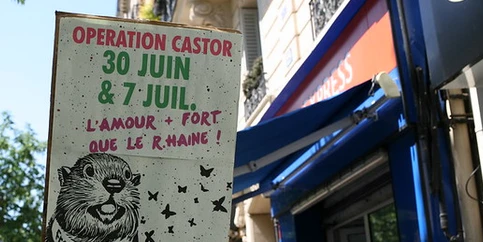 OPERATION CASTOR
30 JUIN
& 7 JUIL.
L'AMOUR + FORT
QUE LE R.HAINE !
PRESS